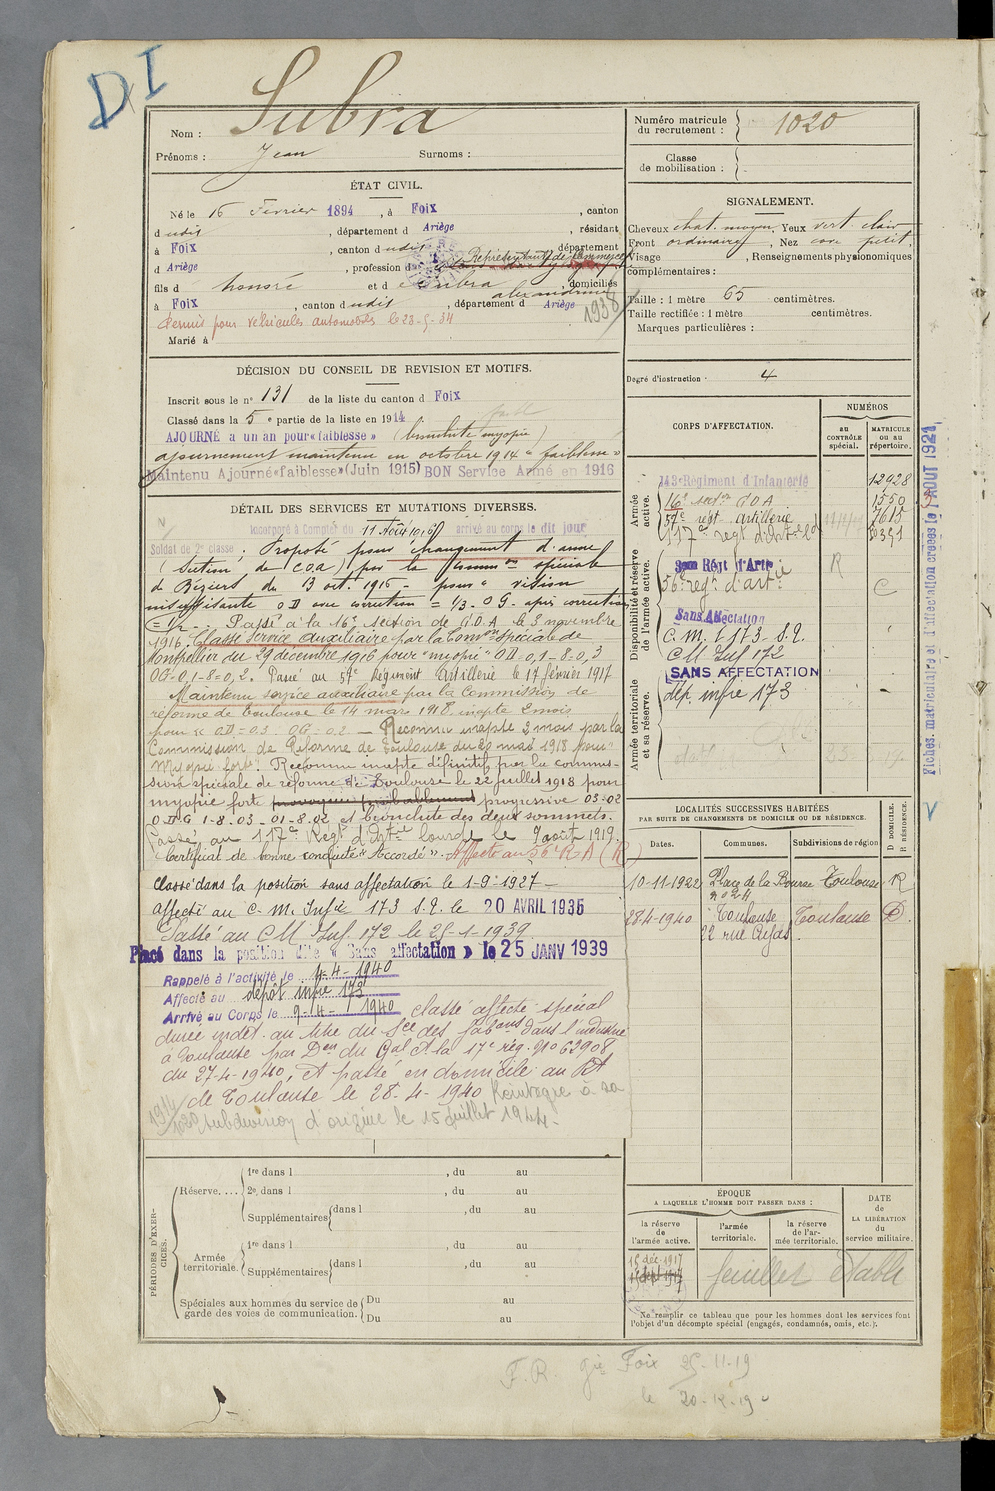 DI
Nom : Subra
Prénoms : Jean Surnoms :
ÉTAT CIVIL.
Né le 16 Février 1894, à Foix, canton
d udit, département d Ariège, résidant
à Foix, canton d udit, département
d Ariège, profession d Représentant de Commerce
fils d honoré et d e Subra alexandrine, domiciliés
à Foix, canton d udit, département d Ariège
1938
Permis pour véhicules automobiles le 23-5-34
Marié à
DÉCISION DU CONSEIL DE REVISION ET MOTIFS.
Inscrit sous le n° 131 de la liste du canton d Foix
Classé dans la 5e partie de la liste en 1914.
AJOURNÉ à un an pour « faiblesse » (bronchite myopie)
ajournement maintenu en octobre 1914 « faiblesse »
Maintenu Ajourné «faiblesse» (Juin 1915) BON Service Armé en 1916
DÉTAIL DES SERVICES ET MUTATIONS DIVERSES.
Incorporé à Compter du 11 Août 1916 arrivé au corps le dit jour
Soldat de 2e classe. Proposé pour changement d'arme
(Section de COA) par la Common spéciale
de Béziers du 13 oct. 1916 - pour « vision
insuffisante OD avec correction = 1/3. OG. après correction
= 1/2. Passé à la 16e section de C.O.A le 3 novembre
1916. Classé Service Auxiliaire par la Comon spéciale de
Montpellier du 29 décembre 1916 pour "myopie" OD=0,1-8=0,3
OG=0,1-8=0,2. Passé au 57e Régiment Artillerie le 17 février 1917
Maintenu service auxiliaire par la Commission de
réforme de Toulouse le 14 mars 1918. inapte 2 mois
pour « OD=0.3 OG=0.2 — Reconnu inapte 2 mois par la
Commission de Réforme de Toulouse du 20 mai 1918 pour
Myopie forte. Reconnu inapte définitif par la commis-
sion spéciale de réforme de Toulouse le 22 juillet 1918 pour
myopie forte progressive 03-02
ODG 1-8.03-01-8.02 et bronchite des deux sommets.
Passé au 117e Régt d'Arte lourde le 9 août 1919.
Certificat de bonne conduite « Accordé ». Affecté au 56e R A (R)
Classé dans la position sans affectation le 1-9-1927 —
affecté au C. M. Infie 173 S.Q. le 20 AVRIL 1935
Passé au CM Inf. 172 le 25-1-1939
Placé dans la position dite « Sans affectation » le 25 JANV 1939
Rappelé à l'activité le 4-4-1940
Affecté au dépôt infie 173
Arrivé au Corps le 9-4-1940 Classé affecté spécial
durée indét. au titre du Sce des fabons dans l'industrie
à Toulouse par Don du Gal Ct la 17e rég. N° 62908
du 27-4-1940, et passé en domicile au Rt
de Toulouse le 28-4-1940 Réintégré à sa
subdivision d'origine le 15 juillet 1944.
PÉRIODES D'EXERCICES.
Réserve....
1re dans l , du au
2e dans l , du au
Supplémentaires dans l , du au
Armée territoriale.
1re dans l , du au
Supplémentaires dans l , du au
Spéciales aux hommes du service de garde des voies de communication.
Du au
Du au
Numéro matricule du recrutement : 1020
Classe de mobilisation :
SIGNALEMENT.
Cheveux chat. moyen, Yeux vert clair
Front ordinaire, Nez cave petit.
Visage , Renseignements physionomiques
complémentaires :
Taille : 1 mètre 65 centimètres.
Taille rectifiée : 1 mètre centimètres.
Marques particulières :
Degré d'instruction : 4
CORPS D'AFFECTATION.
NUMÉROS
au CONTRÔLE spécial.
MATRICULE ou au répertoire.
Armée active.
143e Régiment d'Infanterie 12928
16e secton COA 1550
57e régt artillerie 7615
117e régt d'Artie Lde
Disponibilité et réserve de l'armée active.
56e régt d'artie R C
Sans Affectation
C. M. I 173 S.Q.
CM Inf 172
SANS AFFECTATION
Armée territoriale et sa réserve.
dép. infie 173
Fiches matriculaire et d'affectation créées le 1 AOUT 1921
LOCALITÉS SUCCESSIVES HABITÉES
PAR SUITE DE CHANGEMENTS DE DOMICILE OU DE RÉSIDENCE.
Dates. Communes. Subdivisions de région D DOMICILE. R RÉSIDENCE.
10-11-1922 Place de la Bourse n° 24 Toulouse R
28-4-1940 Toulouse Toulouse D.
22 rue Cujas.
ÉPOQUE
A LAQUELLE L'HOMME DOIT PASSER DANS :
la réserve de l'armée active.
l'armée territoriale.
la réserve de l'armée territoriale.
DATE DE LA LIBÉRATION du service militaire.
15 déc-1917
feuillet établi
Ne remplir ce tableau que pour les hommes dont les services font
l'objet d'un décompte spécial (engagés, condamnés, omis, etc.).
F.R. gie Foix 25-11-19
le 20-12-19